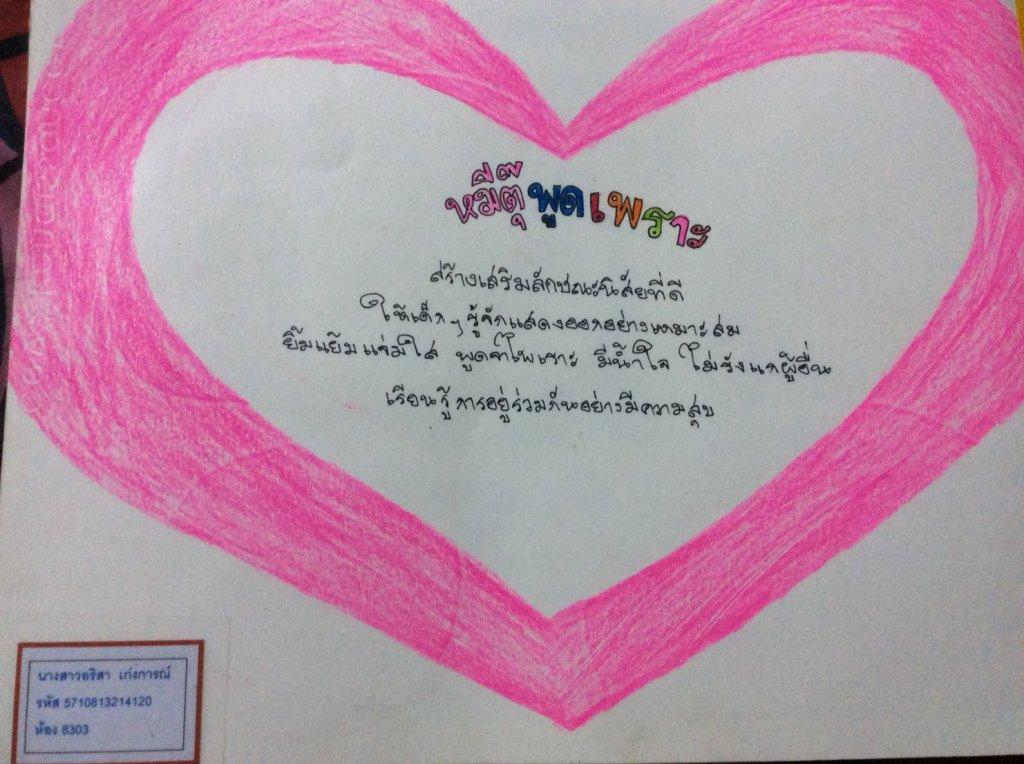 หมีตุ๊พูดเพราะ
สร้างเสริมลักษณะนิสัยที่ดี
ให้เด็กๆ รู้จักแสดงออกอย่างเหมาะสม
ยิ้มแย้มแจ่มใส พูดจาไพเราะ มีน้ำใจ ไม่รังแกผู้อื่น
เรียนรู้การอยู่ร่วมกันอย่างมีความสุข
นางสาวอริสา เก่งการณ์
รหัส 5710813214120
ห้อง 8303